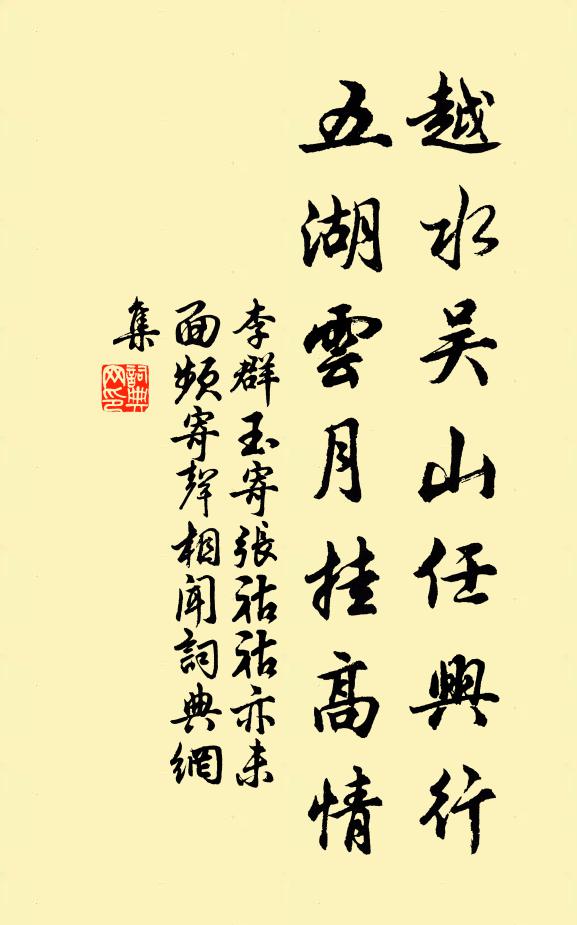 越水吴山任興行
五湖雲月挂高情
李群玉寄張祜祜亦未
面頻寄聲相聞詞典網
集
詞典
网印